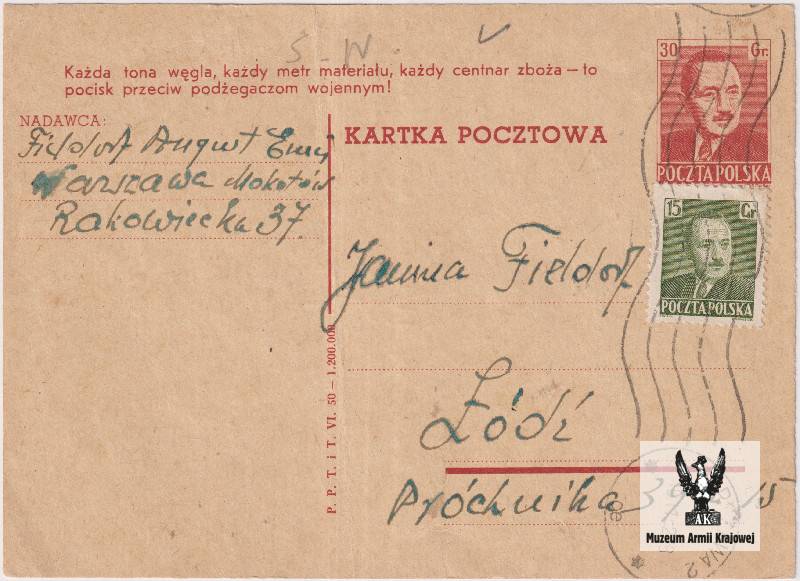 S-IV. V
Każda tona węgla, każdy metr materiału, każdy centnar zboża — to
pocisk przeciw podżegaczom wojennym!
30 Gr.
POCZTA POLSKA
NADAWCA:
Fieldorf August Emil
Warszawa Mokotów
Rakowiecka 37.
KARTKA POCZTOWA
15 Gr
POCZTA POLSKA
Janina Fieldorf
Łódź
Próchnika 39 15
P. P. T. i T. VI. 50 — 1.200.000
AK
Muzeum Armii Krajowej